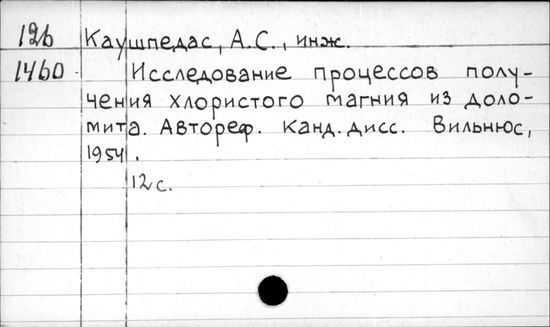 126 Каушпедас, А.С., инж.
1460 Исследование процессов полу-
чения хлористого магния из доло-
мита. Автореф. канд. дисс. Вильнюс,
1954.
12 с.